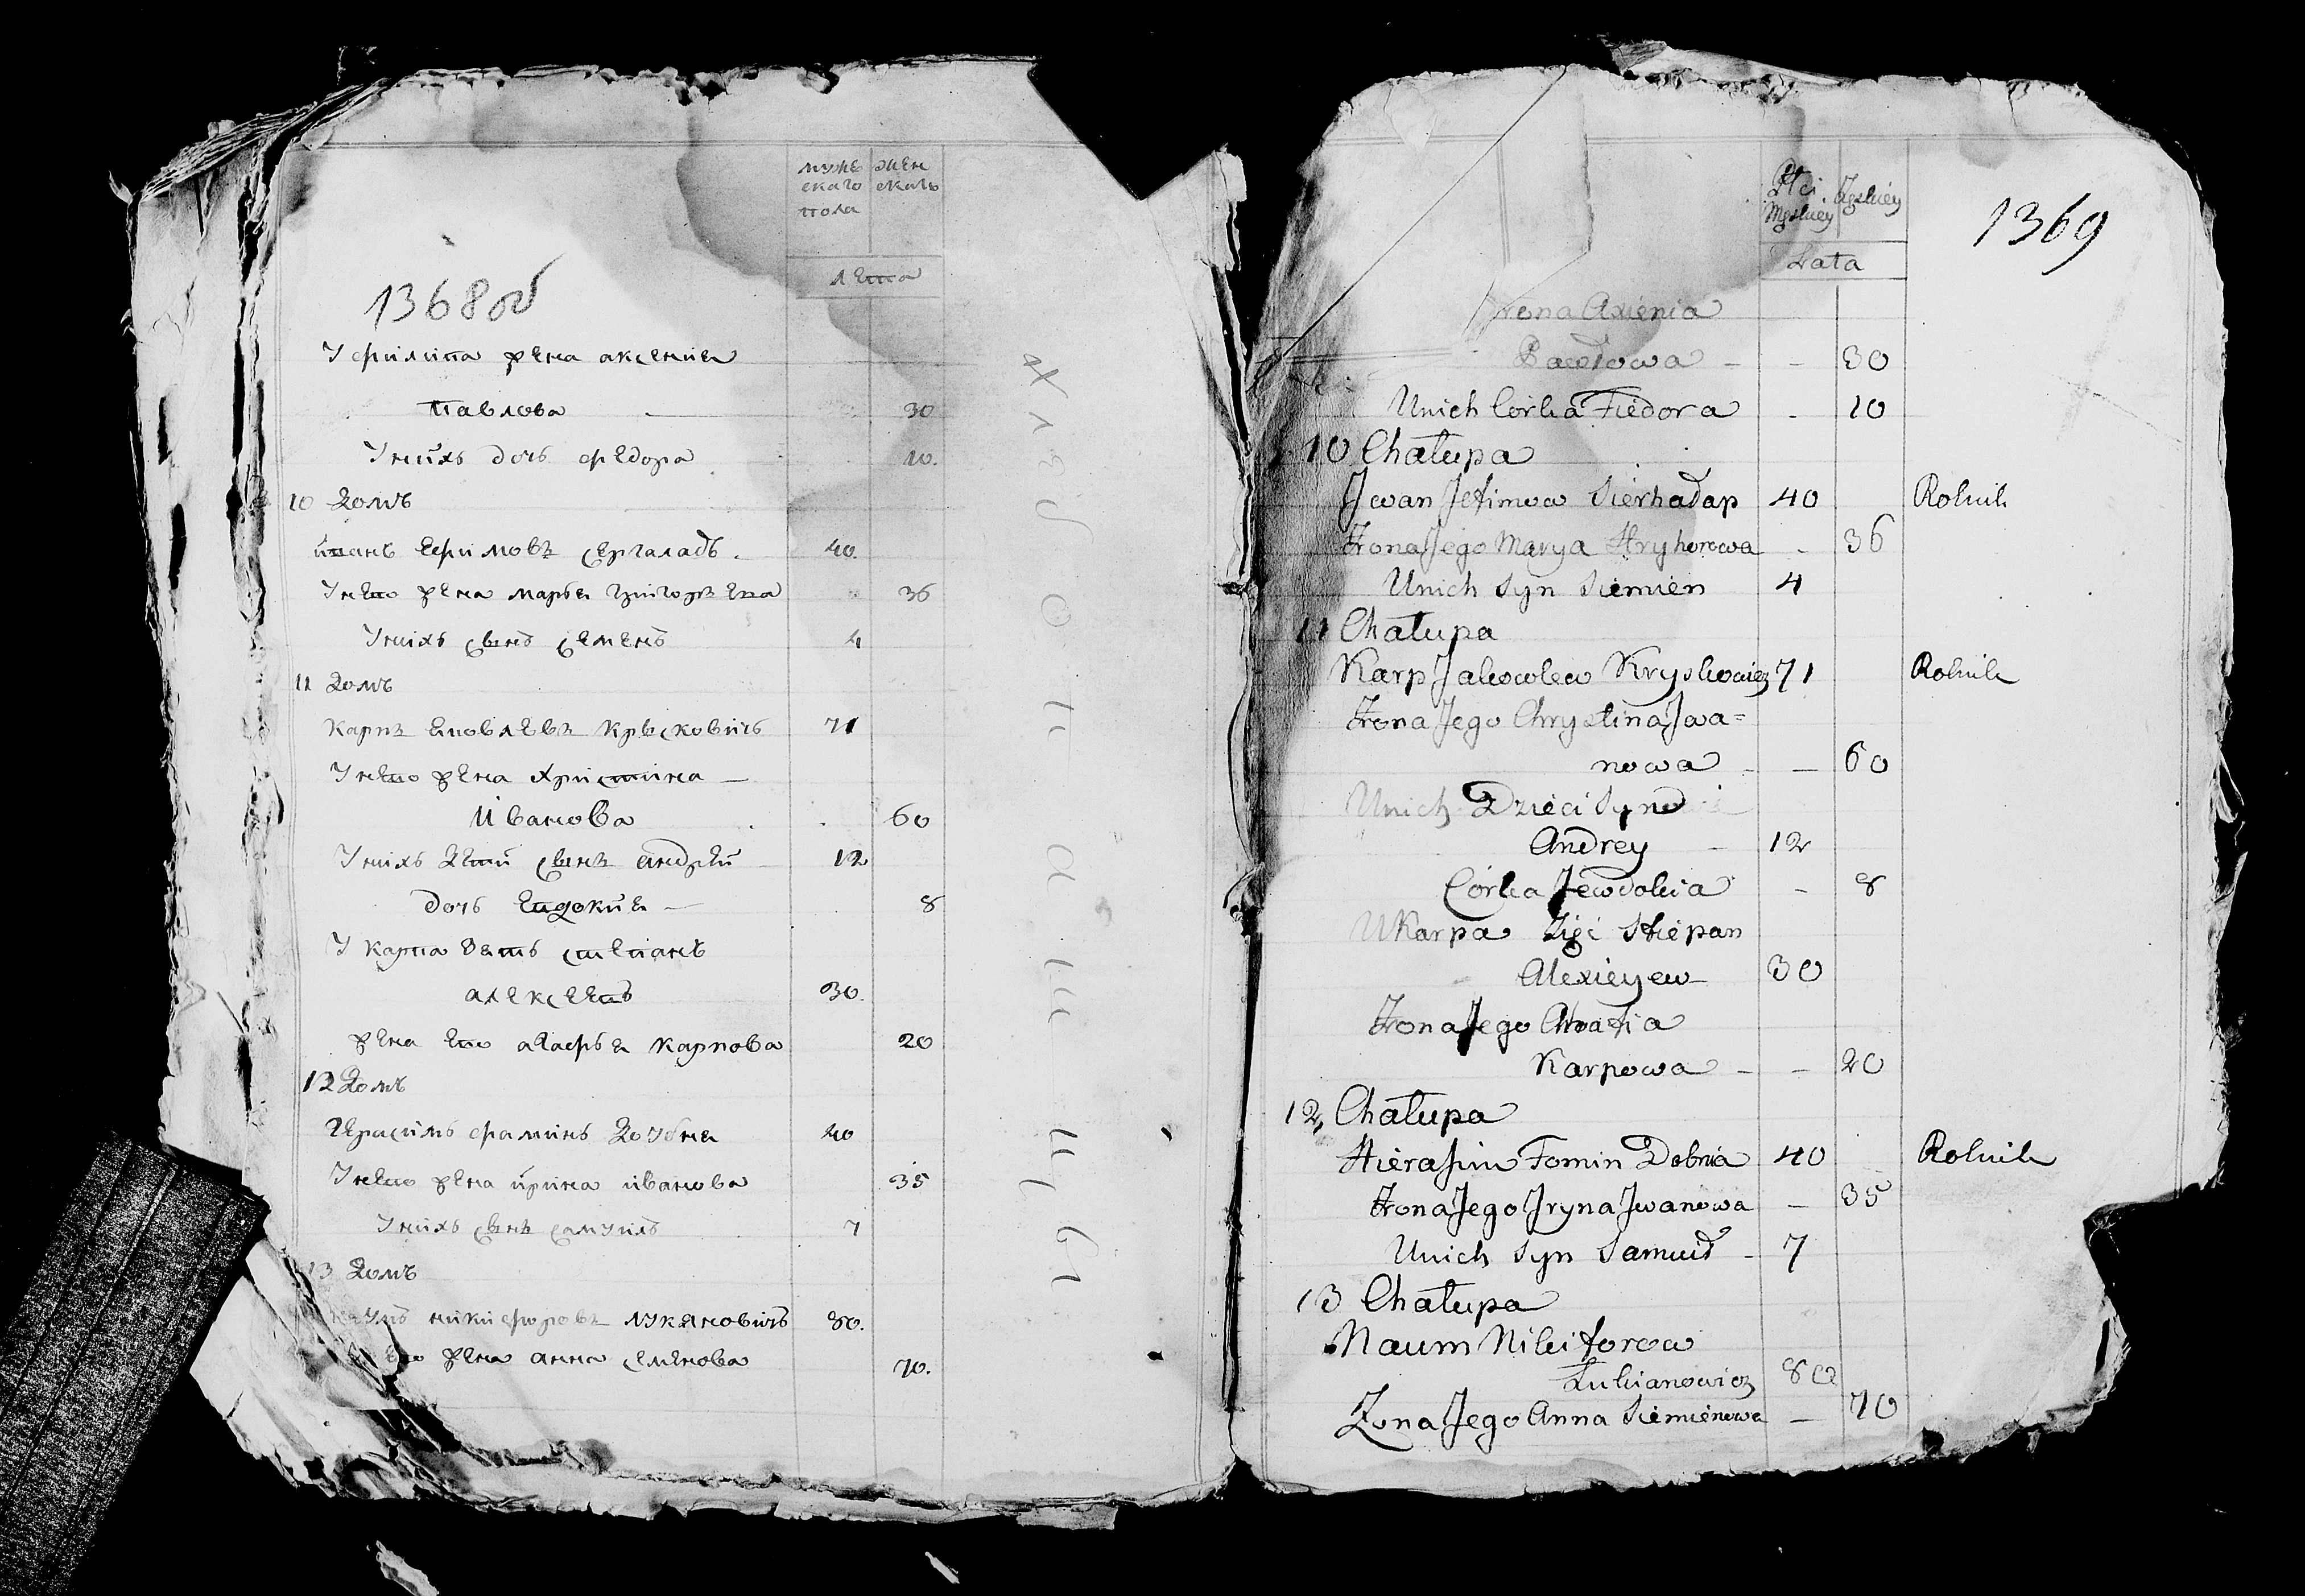 муже
скаго
пола
жен
скаго
лета
1368об
У филипа жена аксения
павлова — 30
У них дочь федора 10.
10 Домъ
иванъ ефимовъ сергаладъ. 40.
У него жена марья григорьева 36
У нихъ сынъ семенъ 4
11 Домъ
Карпъ яковлевъ крысковичь 71
У него жена христина —
ивановa 60
У нихъ дети сынъ андрей 12
дочь евдокия — 8
У карпа зять степанъ
алексеевъ 30.
жена его агафья карпова 20
12 Домъ
герасимъ фоминъ добня 40
У него жена ирина иванова 35
У нихъ сынъ самуилъ 7
13 Домъ
наумъ никифоровъ лукяновичъ 80.
его жена анна семенова 70.
хлебопашцы
Płci
Męskiey
Żęskiey
Lata
1369
Żona Axienia
Pawłowa - - 30
Unich Córka Fiedora - 10
10 Chałupa
Jwan Jefimow Sierhaład 40 Rolnik
Żona Jego Marya Hryhorowa - 36
Unich Syn Siemien 4
11 Chałupa
Karp Jakowlew Kryskowicz 71 Rolnik
Żona Jego Chrystina Jwa=
nowa - — 60
Unich Dzieci Syn
Andrey - 12
Córka Jewdokia - 8
U Karpa Zięć Stiepan
Alexieyew 30
Żona Jego Ahafia
Karpowa - - 20
12, Chałupa
Hierasim Fomin Dobnia 40 Rolnik
Żona Jego Jryna Jwanowa - 35
Unich Syn Samuił - 7
13 Chałupa
Naum Nikiforow
Łukianowicz 80
Żona Jego Anna Siemienowa — 70